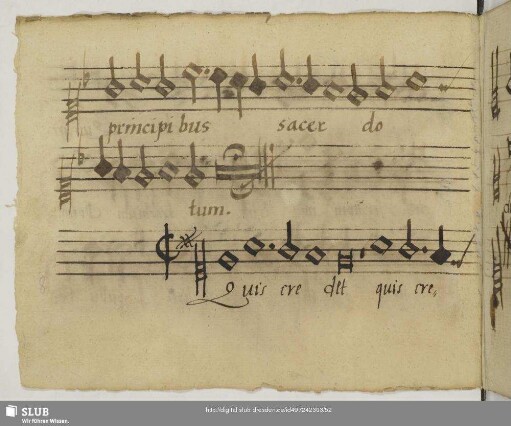 principi bus sacer do
tum.
Quis cre det quis cre,
SLUB
Wir führen Wissen.